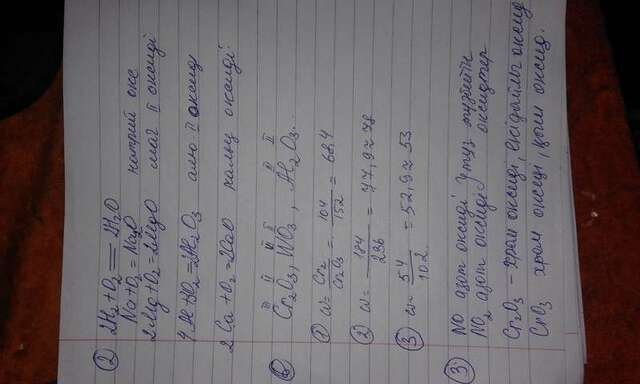 ② 2H₂+O₂ = 2H₂O
Na+O₂ = Na₂O натрий окс
2Mg+O₂=2MgO маг II оксиді
4Al+3O₂=2Al₂O₃ алю II оксид
2Ca+O₂=2CaO кальц оксиді
III II VI II III II
⑥ Cr₂O₃, WO₃, Al₂O₃.
① ω= Cr₂/Cr₂O₃ = 104/152 = 68,4
② ω= 184/236 = 77,9≈78
③ ω= 54/102 = 52,9≈53
③ NO азот оксиді тұз түзбейтін
NO₂ азот оксиді оксидтер
Cr₂O₃ – хром оксиді, екідайлы оксид
CrO₃ хром оксиді, қыш оксид.